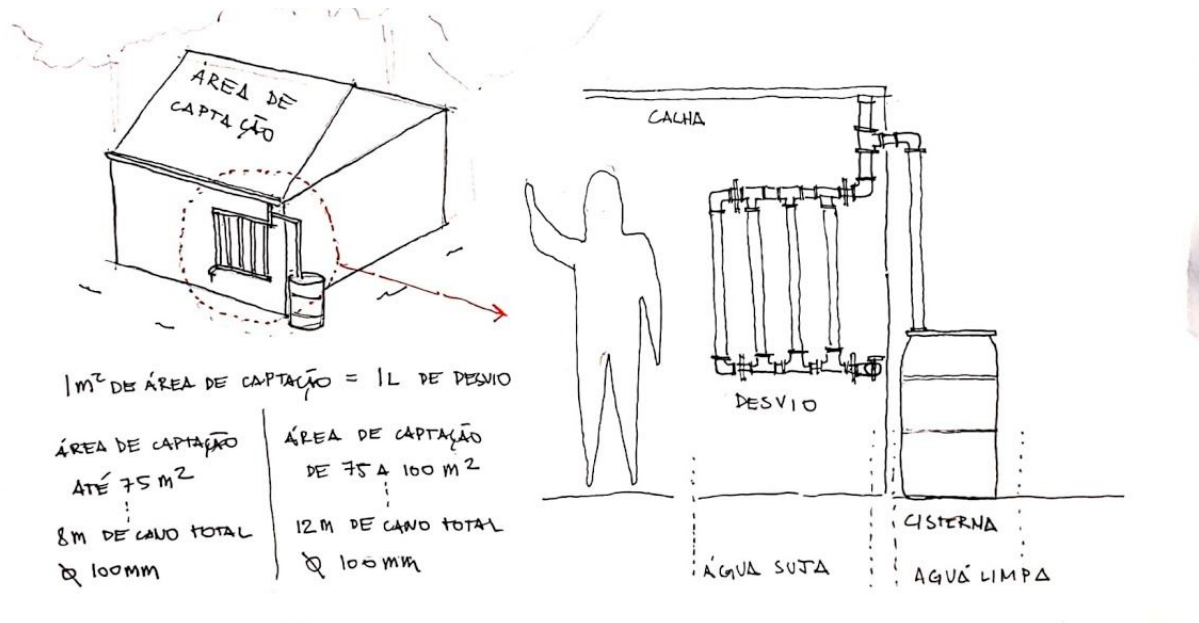 ÁREA DE
CAPTAÇÃO
1m² DE ÁREA DE CAPTAÇÃO = 1L DE DESVIO
ÁREA DE CAPTAÇÃO
ATÉ 75 m²
8m DE CANO TOTAL
Ø 100mm
ÁREA DE CAPTAÇÃO
DE 75 A 100 m²
12m DE CANO TOTAL
Ø 100mm
CALHA
DESVIO
CISTERNA
ÁGUA SUJA
AGUÁ LIMPA